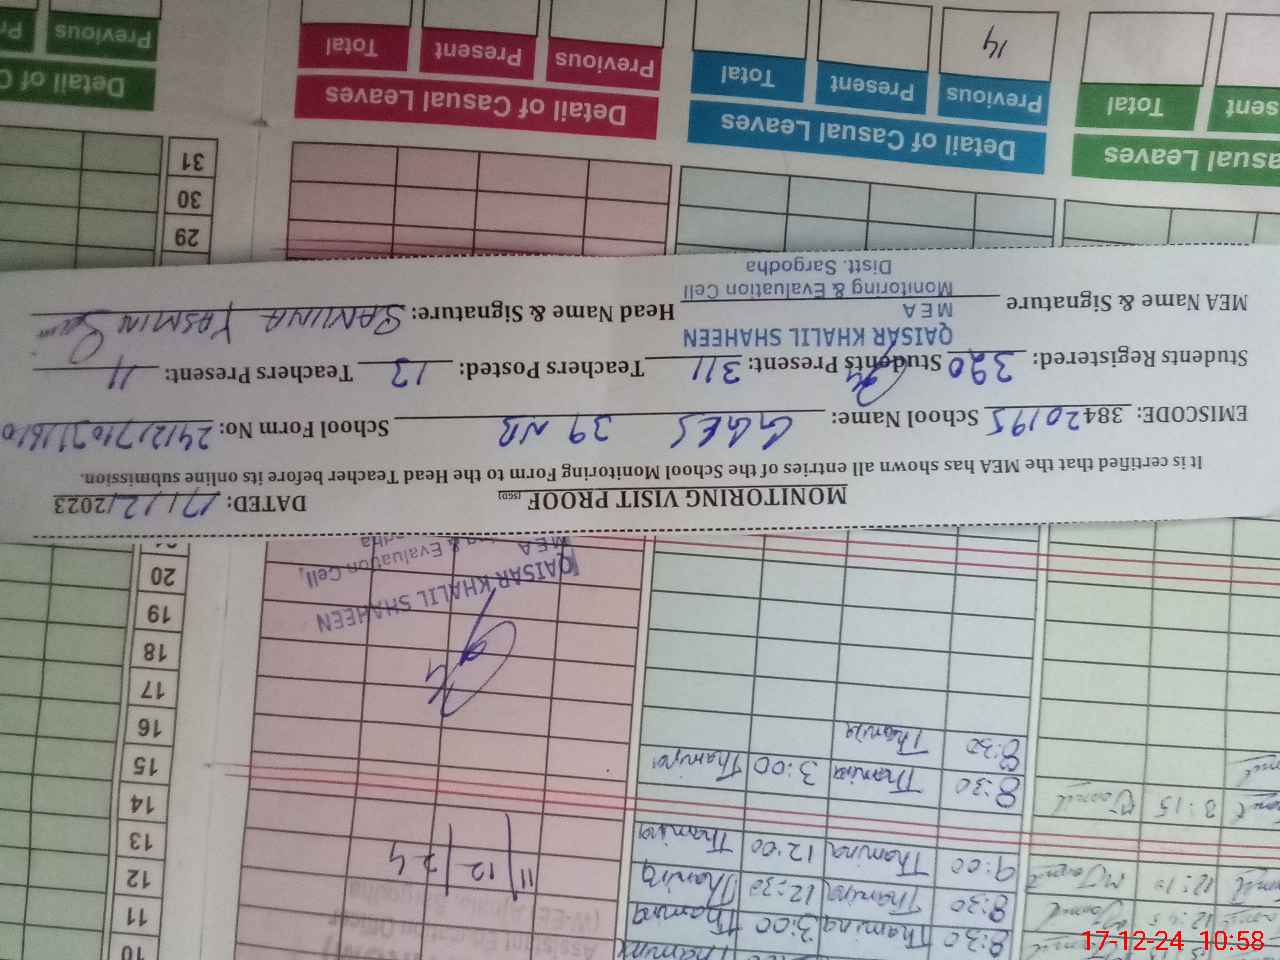 MONITORING VISIT PROOF [SGD] DATED: 17/12/2023
It is certified that the MEA has shown all entries of the School Monitoring Form to the Head Teacher before its online submission.
EMISCODE: 38420195 School Name: GGES 39 NB School Form No:
Students Registered: 320 Students Present: 311 Teachers Posted: 13 Teachers Present: 11
MEA Name & Signature Head Name & Signature: YASMIN
QAISAR KHALIL SHAHEEN
MEA
Monitoring & Evaluation Cell
Distt. Sargodha
10
11
12
13
14
15
16
17
18
19
20
29
30
31
8:30 Thamina 3:00 Thamina
8:30 Thamina 12:30 Thamina
9:00 Thamina 12:00 Thamina
8:30 Thamina 3:00 Thamina
8:30 Thamina
11/12/24
Assistant Education Officer
QAISAR KHALIL SHAHEEN
MEA
& Evaluation Cell,
8:15
12:10
Casual Leaves
sent Total
Detail of Casual Leaves
Previous Present Total
14
Detail of Casual Leaves
Previous Present Total
Detail of C
Previous Pr
17-12-24 10:58